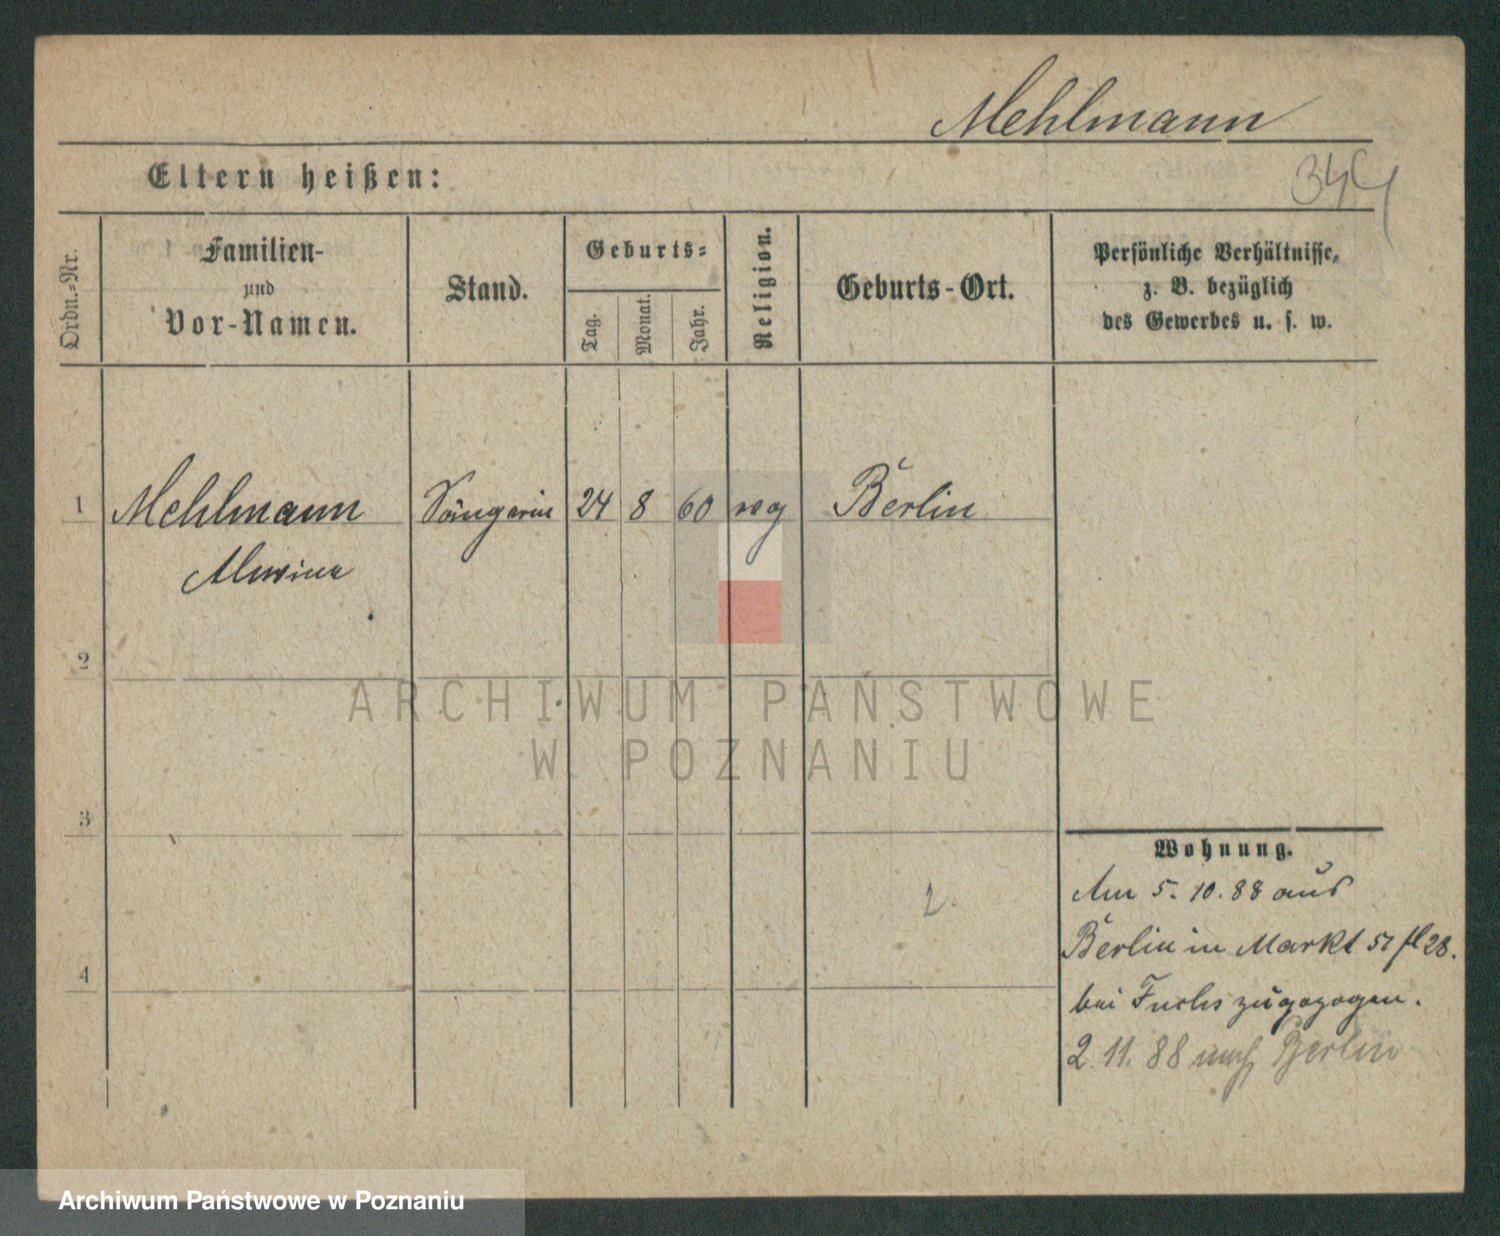 Mehlmann
Eltern heißen:
344
Ordn.-Nr.
Familien-
und
Vor-Namen.
Stand.
Geburts-
Tag.
Monat.
Jahr.
Religion.
Geburts-Ort.
Persönliche Verhältnisse,
z. B. bezüglich
des Gewerbes u. s. w.
1 Mehlmann Sängerin 24 8 60 Berlin
Alwine
2
3
4
2.
Wohnung.
Am 5. 10. 88 aus
Berlin in Markt 57 fl 28.
bei Fuchs zugezogen.
2. 11. 88 nach Berlin
ARCHIWUM PAŃSTWOWE
W POZNANIU
Archiwum Państwowe w Poznaniu